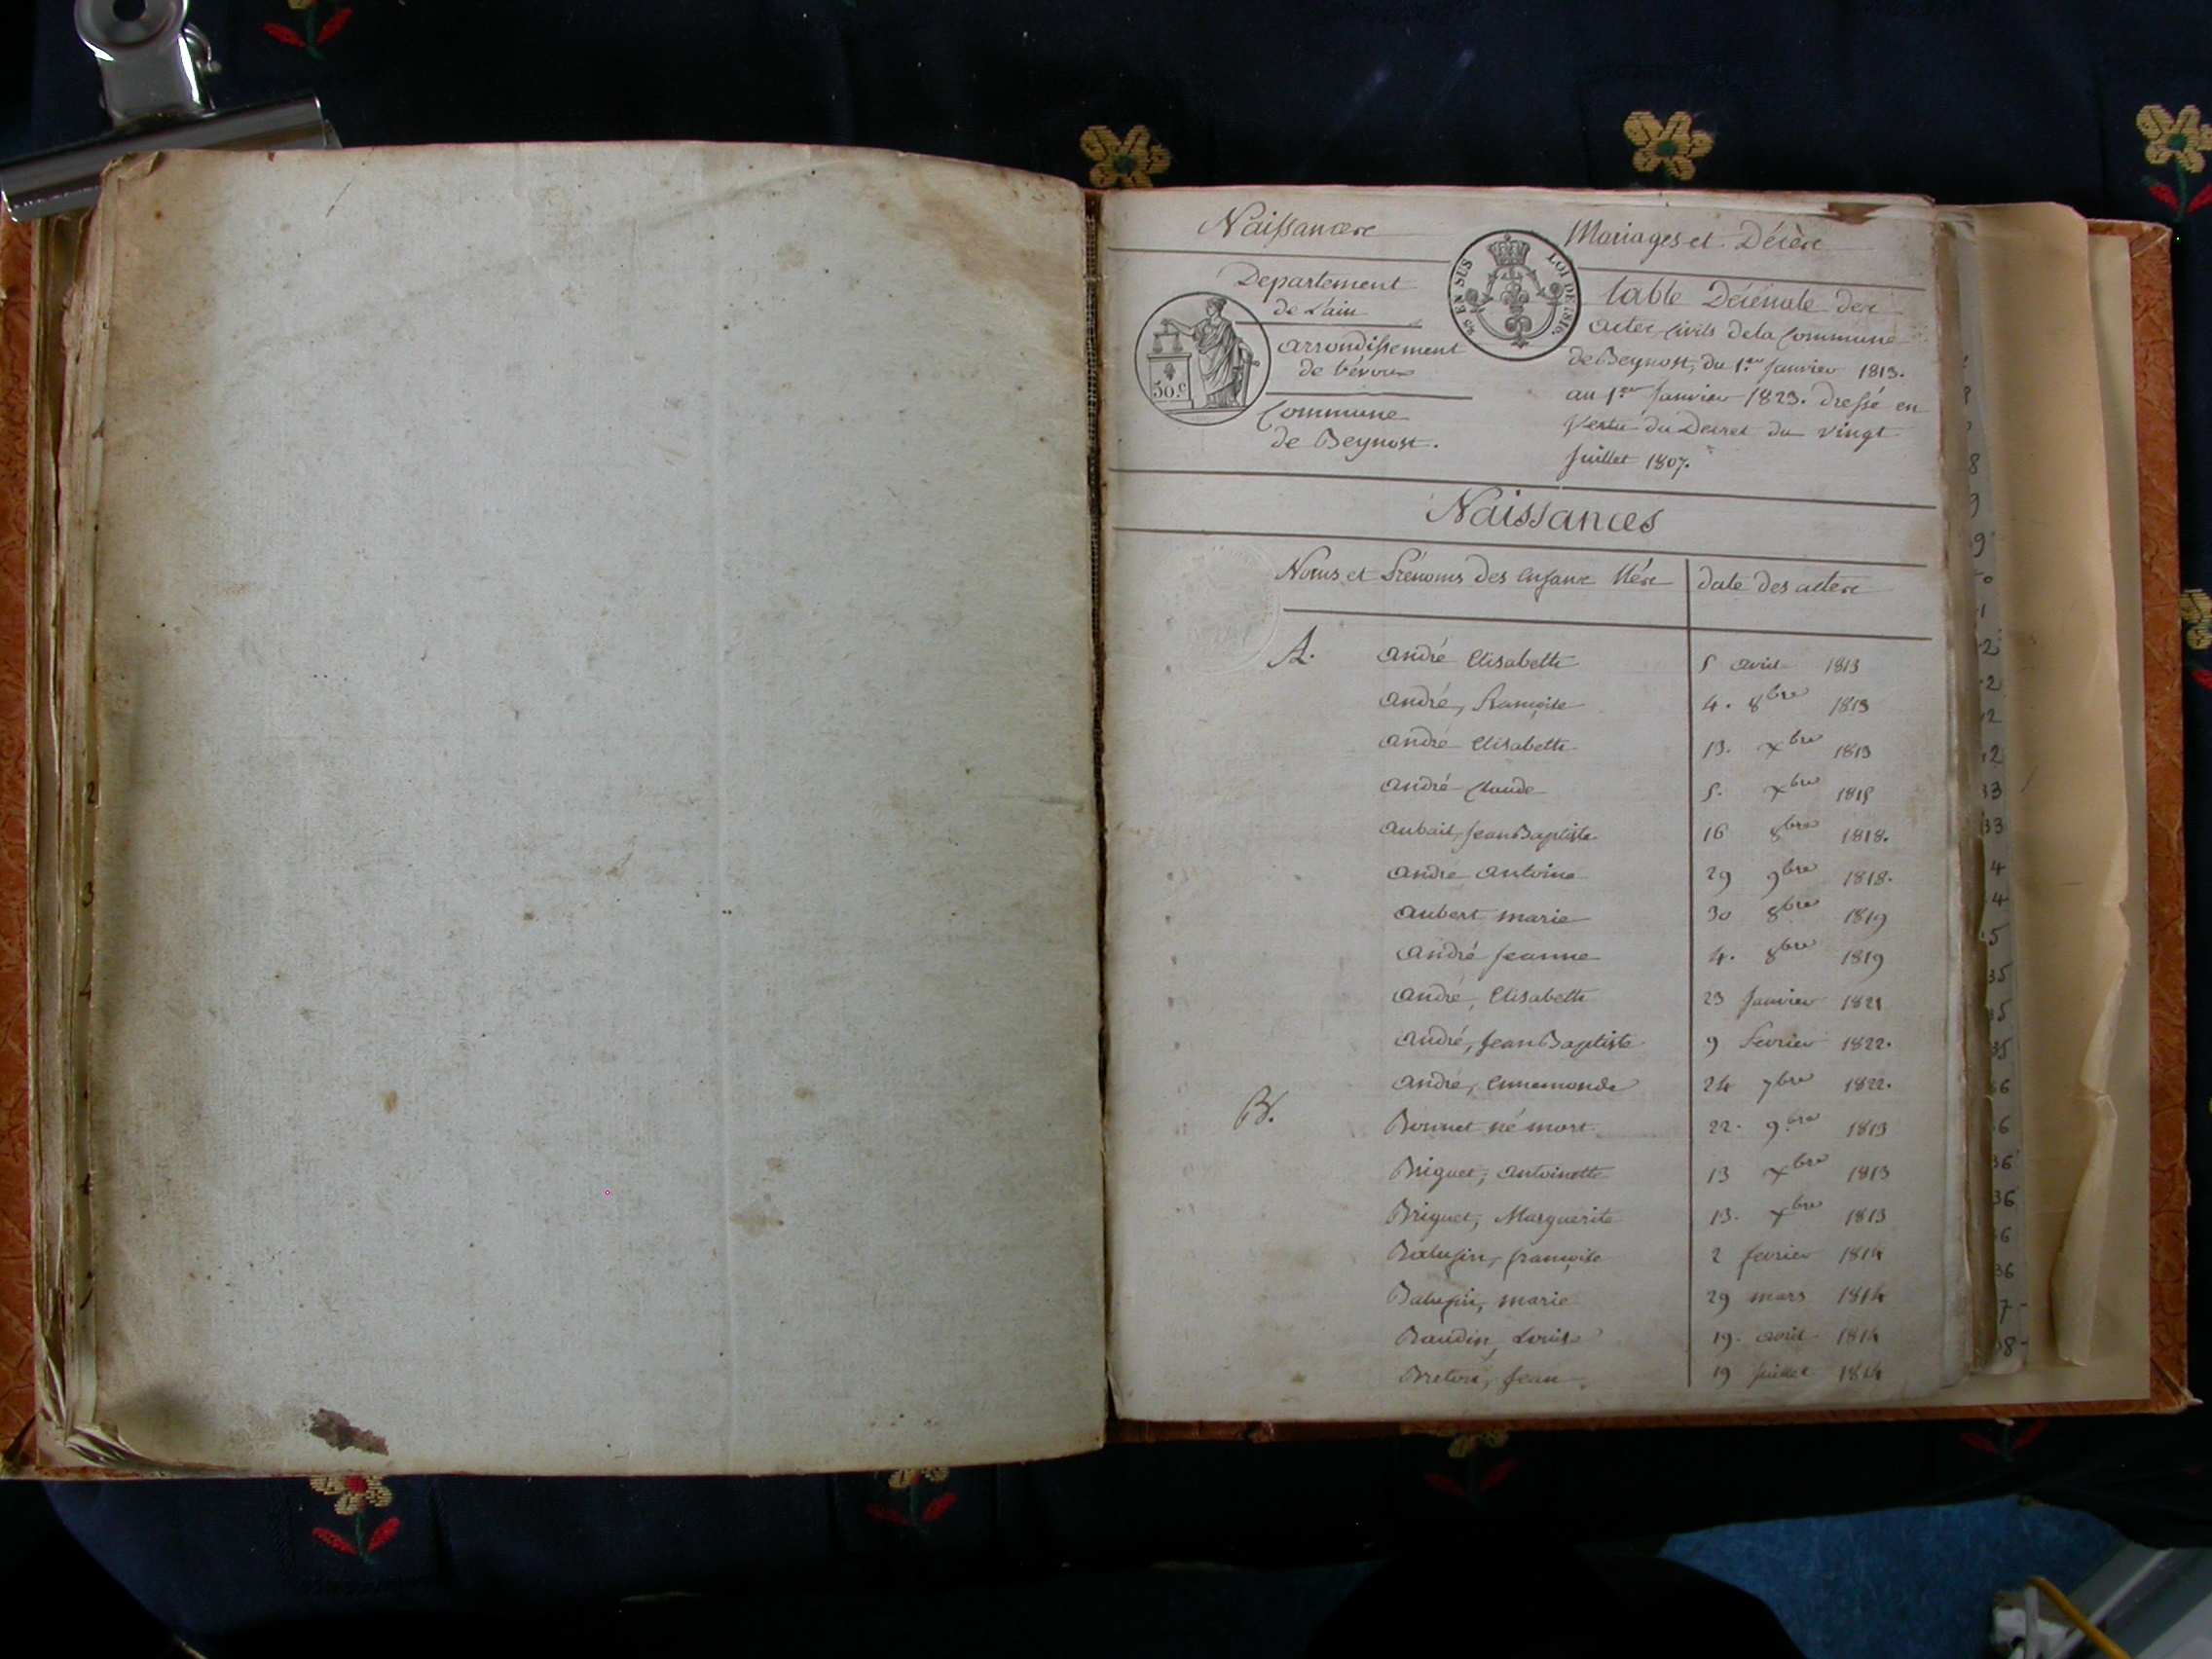 Naissances
Mariages et Décès
Departement
de L'ain
arrondissement
de trévoux
Commune
de Beynost.
50.c
5.e EN SUS LOI DE 1816.
table Décénale des
actes civils de la Commune
de Beynost, du 1.er Janvier 1813.
au 1.er Janvier 1823. dressé en
Vertu du Decret du vingt
Juillet 1807.
Naissances
Noms et Prénoms des enfans Nés
date des actes
A. andré Elisabeth 5 avril 1813
andré, françoise 4. 8bre 1813
andré Elisabeth 13. xbre 1813
andré Claude 5. xbre 1815
Jean Baptiste 16 8bre 1818.
andré antoine 29 9bre 1818.
aubert marie 30 8bre 1819
andré jeanne 4. 8bre 1819
andré, Elisabeth 23 Janvier 1821
andré, Jean Baptiste 9 fevrier 1822.
andré, Ennemonde 24 7bre 1822.
B. Bonnet né mort. 22. 9.bre 1813
Briguet, antoinette 13 xbre 1813
Briguet, Marguerite 13. xbre 1813
françoise 2 fevrier 1814
marie 29 mars 1814
Baudin, Louise 19. avril 1814
Breton, Jean 19 juillet 1814